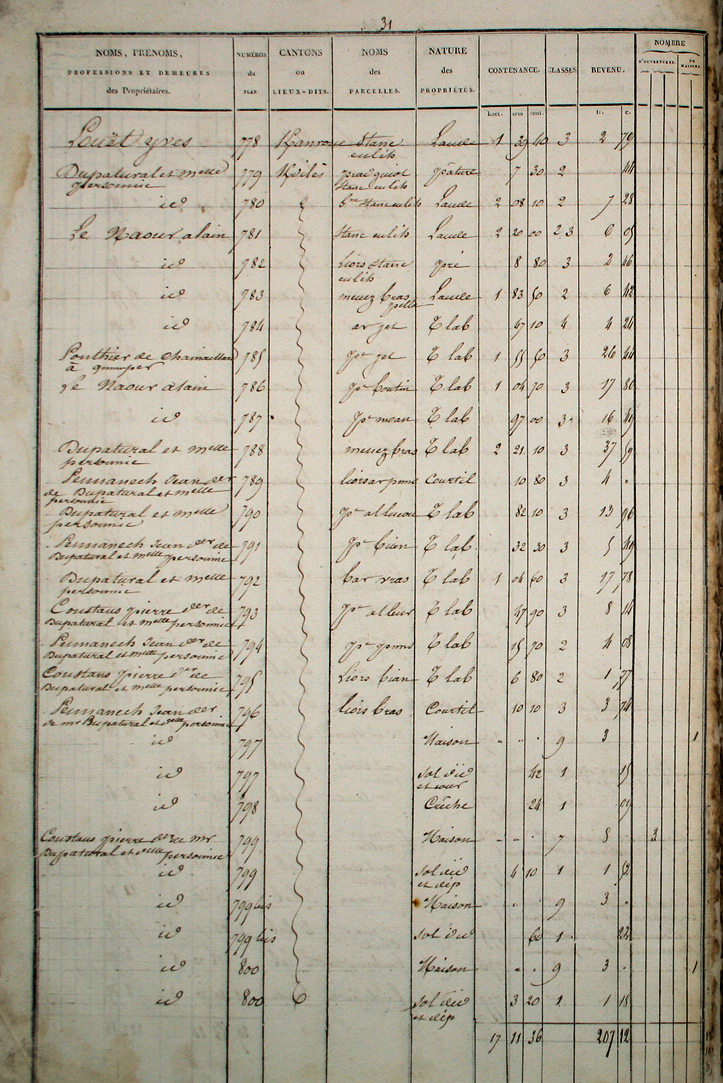 31
NOMS, PRÉNOMS, PROFESSIONS ET DEMEURES des Propriétaires. NUMÉROS du PLAN. CANTONS ou LIEUX-DITS. NOMS des PARCELLES. NATURE des PROPRIÉTÉS. CONTENANCE. CLASSES. REVENU. NOMBRE D'OUVERTURES. DE MAISONS.
hect. ares cent. fr. c.
Louët yves 778 stanc Lande 1 39 10 3 2 79
en lih
Dupatural et melle 779 pâture 7 30 2 44
personnic stanc en lih
id 780 stanc en lih Lande 2 08 10 2 7 28
Le Naour alain 781 stanc en lih Lande 2 20 00 2 3 6 05
id 782 liors stanc pré 8 80 3 2 46
en lih
id 783 menez bras Lande 1 83 50 2 6 42
pella
id 784 ar jet T lab 47 10 4 4 24
Pouthier de chamaillard 785 pt jet T lab 1 55 50 3 26 44
à quimper
Le Naour alain 786 T lab 1 04 70 3 17 80
id 787 pt mean T lab 97 00 3 16 49
Dupatural et melle 788 menez bras T lab 2 21 10 3 37 59
personnic
Penmanech Jean der 789 liors ar prune Courtil 10 80 3 4 .
de Dupatural et melle
personnic
Dupatural et melle 790 T lab 82 10 3 13 96
personnic
Penmanech Jean der de 791 pt bien T lab 32 30 3 5 49
Dupatural et melle personnic
Dupatural et melle 792 bar vras T lab 1 04 60 3 17 78
personnic
Coustans pierre der de 793 pt al leur T lab 47 90 3 8 14
Dupatural et melle personnic
Penmanech Jean der de 794 T lab 15 70 2 4 08
Dupatural et melle personnic
Coustans pierre der de 795 Liors bian T lab 6 80 2 1 77
Dupatural et melle personnic
Penmanech Jean der 796 liors bras Courtil 10 10 3 3 74
de mr Dupatural et melle personnic
id 797 Maison . . . 9 3 . 1
id 797 sol d'id 42 1 15
et cour
id 798 Crêche 24 1 09
Coustans pierre der de mr 799 Maison . . . 7 8 . 3
Dupatural et melle personnic
id 799 sol d'id 4 10 1 1 52
et dép
id 799 bis Maison . . 9 3 .
id 799 bis sol d'id 60 1 22
id 800 Maison . . 9 3 . 1
id 800 sol d'id 3 20 1 1 18
et dép
17 11 36 207 12